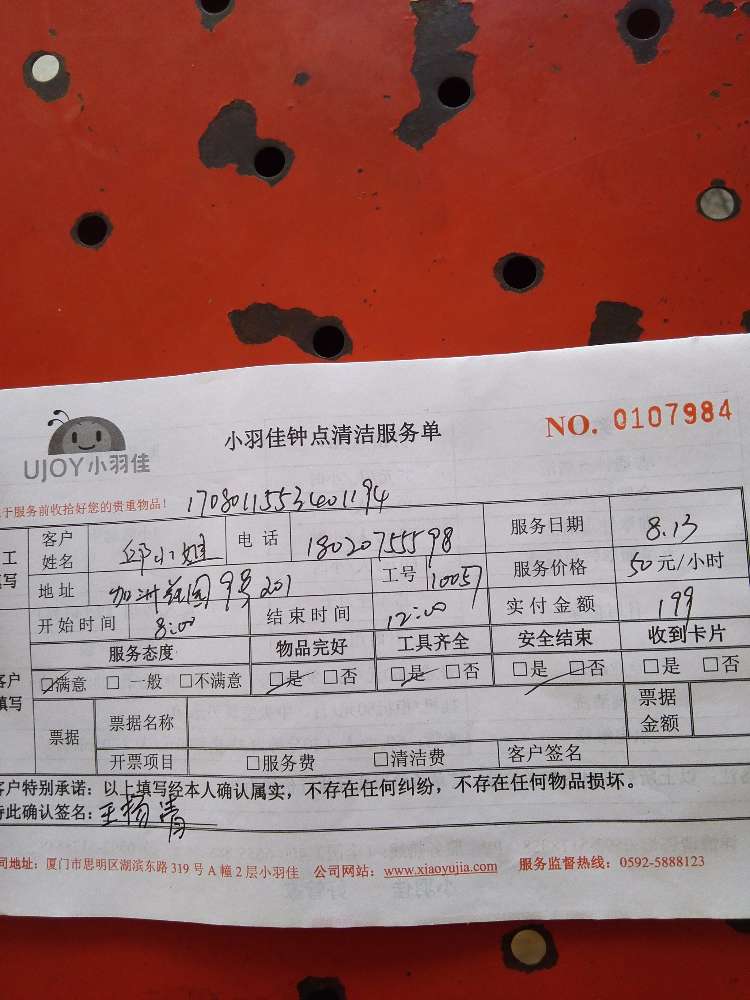 UJOY小羽佳
小羽佳钟点清洁服务单
NO. 0107984
于服务前收拾好您的贵重物品! 1708011553401194
工 客户姓名 邱小姐 电话 18020755598 服务日期 8.13
填写 地址 加洲花园9号201 工号 10057 服务价格 50元/小时
开始时间 8:00 结束时间 12:00 实付金额 199
服务态度 物品完好 工具齐全 安全结束 收到卡片
客户填写 □满意 □一般 □不满意 □是 □否 □是 □否 □是 □否 □是 □否
票据 票据名称 票据金额
开票项目 □服务费 □清洁费 客户签名
客户特别承诺:以上填写经本人确认属实,不存在任何纠纷,不存在任何物品损坏。
特此确认签名:王杨青
司地址:厦门市思明区湖滨东路319号A幢2层小羽佳 公司网站:www.xiaoyujia.com 服务监督热线:0592-5888123